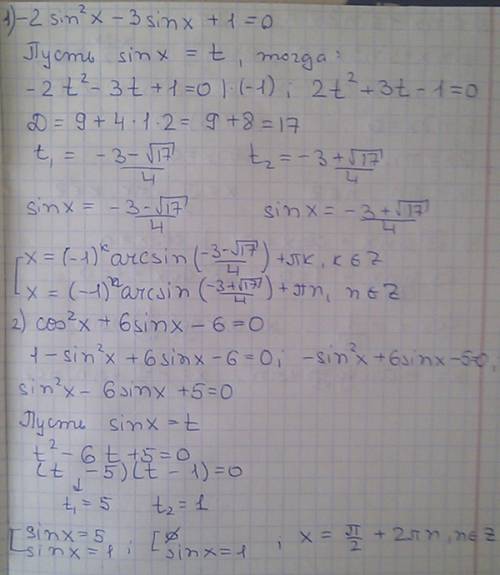 1) -2 sin²x - 3 sinx + 1 = 0
Пусть sinx = t, тогда:
-2t² - 3t + 1 = 0 | ·(-1) ; 2t² + 3t - 1 = 0
D = 9 + 4·1·2 = 9 + 8 = 17
t₁ = (-3-√17)/4 t₂ = (-3+√17)/4
sinx = (-3-√17)/4 sinx = (-3+√17)/4
[ x = (-1)ᵏ arcsin((-3-√17)/4) + πk, k ∈ Z
x = (-1)ⁿ arcsin((-3+√17)/4) + πn, n ∈ Z
2) cos²x + 6sinx - 6 = 0
1 - sin²x + 6sinx - 6 = 0; -sin²x + 6sinx - 5=0;
sin²x - 6sinx + 5 = 0
Пусть sinx = t
t² - 6t + 5 = 0
(t - 5)(t - 1) = 0
↓
t₁ = 5 t₂ = 1
[ sinx = 5 ; [ ∅ ; x = π/2 + 2πn, n ∈ Z
sinx = 1 sinx = 1